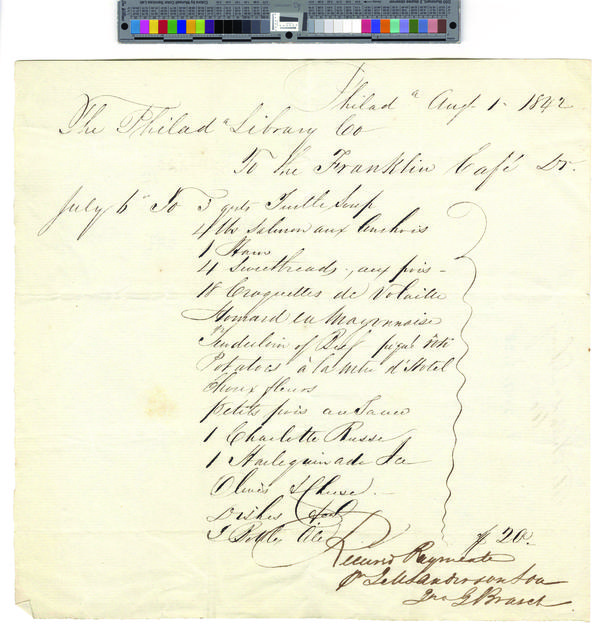 Philad.ª Augt 1. 1842
The Philadª Library Co
To the Franklin Café Dr.
July 6 To 3 qrts Turtle Soup
4 lbs Salmon aux Anchois
1 Ham
4 Sweetbreads, aux pois -
18 Croquettes de Volaille
Homard en Mayonnaise
Tenderloin of Beef piqué rôti
Potatoes à la mtre d'Hotel
Choux fleurs
petits pois au
1 Charlotte Russe
1 Harlequinade Ice
Olives & Cheese. -
Dishes
Bottles Ale $ 20.
Received Payment
Son
Jno G Brasch